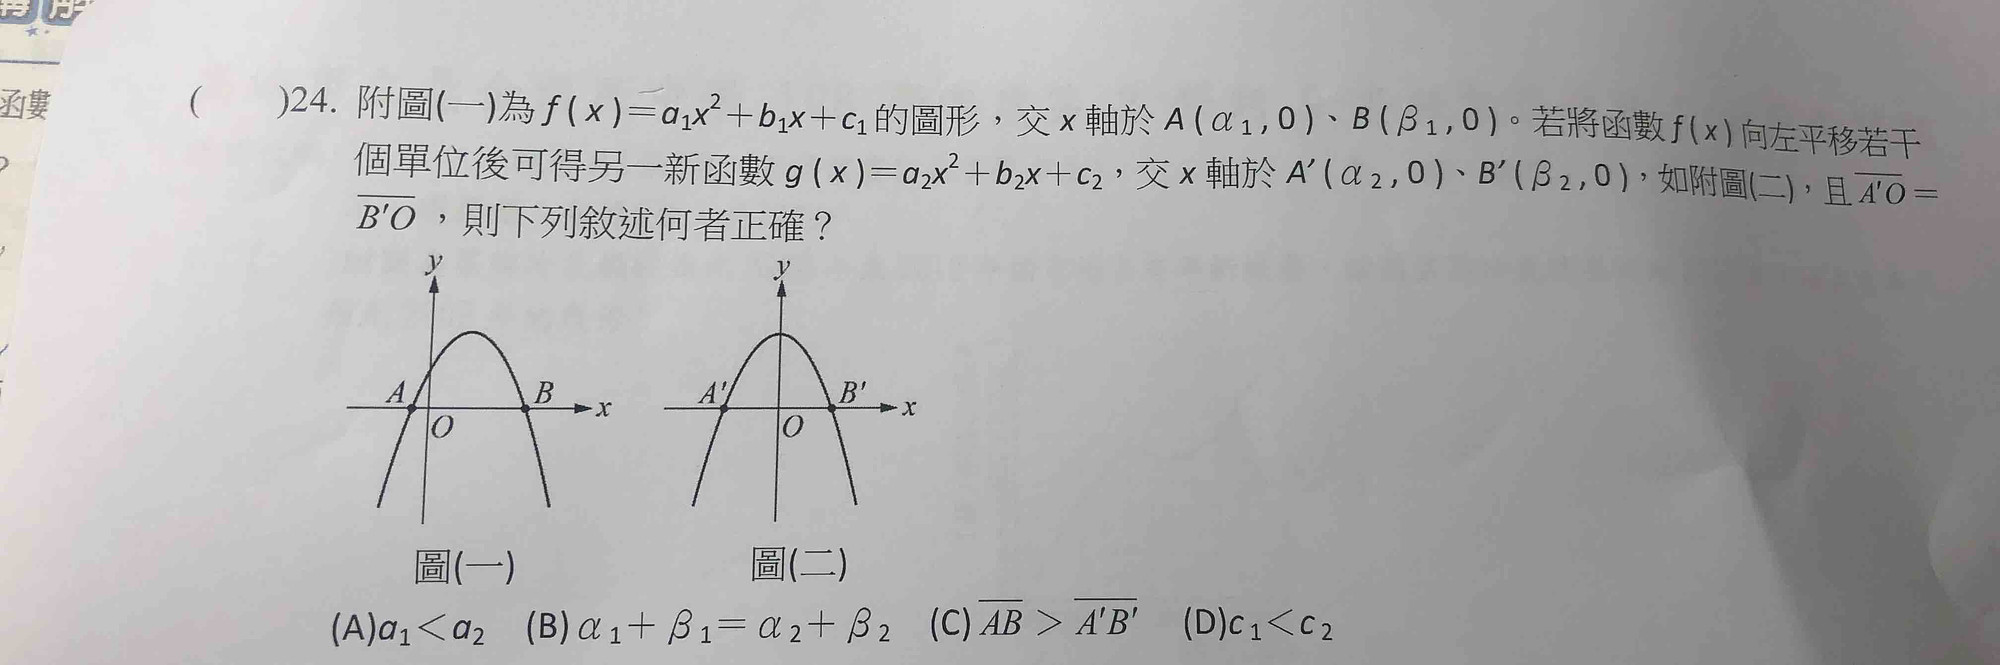 函數
(　　)24. 附圖(一)為 f ( x )=a₁x²+b₁x+c₁ 的圖形，交 x 軸於 A ( α ₁ , 0 )、B ( β ₁ , 0 )。若將函數 f ( x ) 向左平移若干
個單位後可得另一新函數 g ( x )=a₂x²+b₂x+c₂，交 x 軸於 A′ ( α ₂ , 0 )、B′ ( β ₂ , 0 )，如附圖(二)，且 A̅'̅O̅ =
B̅'̅O̅ ，則下列敘述何者正確？
y y
A B x A' B' x
O O
圖(一) 圖(二)
(A)a₁<a₂ (B) α ₁+ β ₁= α ₂+ β ₂ (C) A̅B̅ > A̅'̅B̅'̅ (D)c₁<c₂